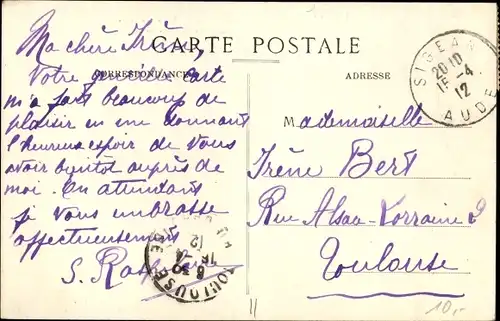 CARTE POSTALE
CORRESPONDANCE
ADRESSE
Ma chère Irène,
Votre carte
m'a fait beaucoup de
plaisir en me donnant
l'heureux espoir de vous
avoir bientôt auprès de
moi. En attendant
je vous embrasse
affectueusement
S.
Mademoiselle
Irène Bert
Rue Alsace-Lorraine 9
Toulouse
SIGEAN
20 10
15 -4
12
AUDE
TOULOUSE
8 30
16 -4
12
10,-